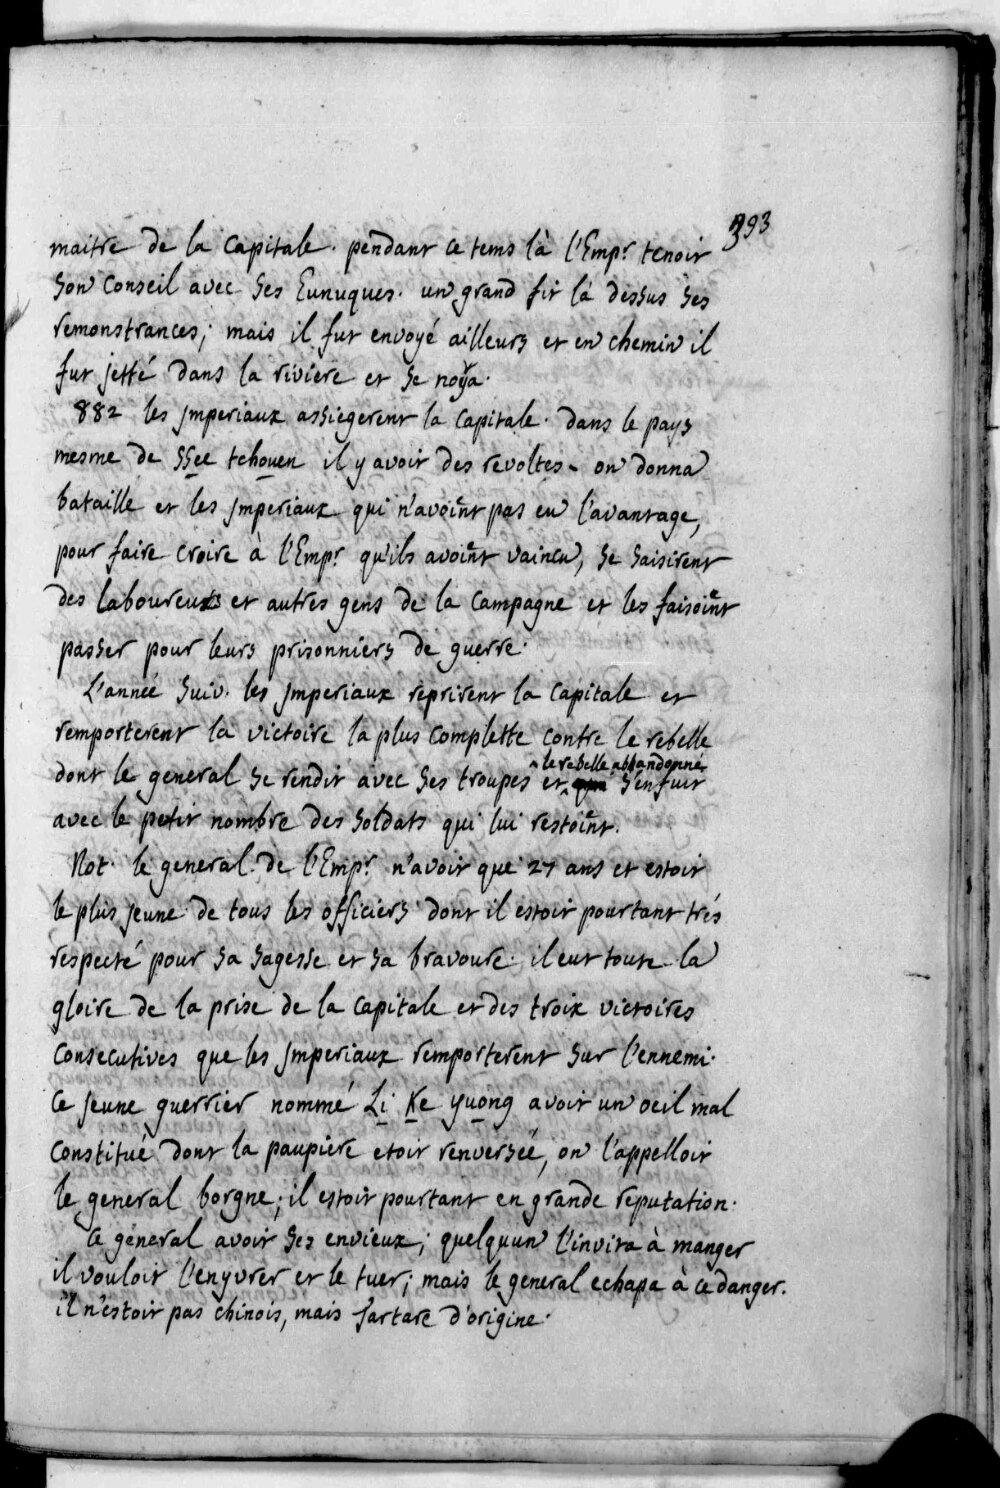 393
maitre de la capitale. pendant ce tems là l'Empr. tenoit
son conseil avec ses Eunuques. un grand fit là dessus ses
remonstrances; mais il fut envoyé ailleurs et en chemin il
fut jetté dans la riviere et se noÿa.
882 les jmperiaux assiegerent la capitale. dans le pays
mesme de ssee tchouen il y avoit des revoltes. on donna
bataille et les jmperiaux qui n'avoient pas eu l'avantage,
pour faire croire à l'Empr. qu'ils avoient vaincu, se saisirent
des laboureurs et autres gens de la campagne et les faisoient
passer pour leurs prisonniers de guerre.
L'année suiv. les jmperiaux reprirent la capitale et
remporterent la victoire la plus complette contre le rebelle
dont le general se rendit avec ses troupes et le rebelle abbandonné s'enfuit
avec le petit nombre des soldats qui lui restoient.
Not. le general de l'Empr. n'avoit que 27 ans et estoit
le plus jeune de tous les officiers dont il estoit pourtant trés
respecté pour sa sagesse et sa bravoure. il eut toute la
gloire de la prise de la capitale et des troix victoires
consecutives que les jmperiaux remporterent sur l'ennemi.
Ce jeune guerrier nommé Li Ke yuong avoit un oeil mal
constitué dont la paupiere etoit renversée, on l'appelloit
le general borgne; il estoit pourtant en grande reputation.
Ce général avoit ses envieux; quelquun l'invita à manger
il vouloit l'enyvrer et le tuer; mais le general echapa à ce danger.
il n'estoit pas chinois, mais Tartare d'origine.